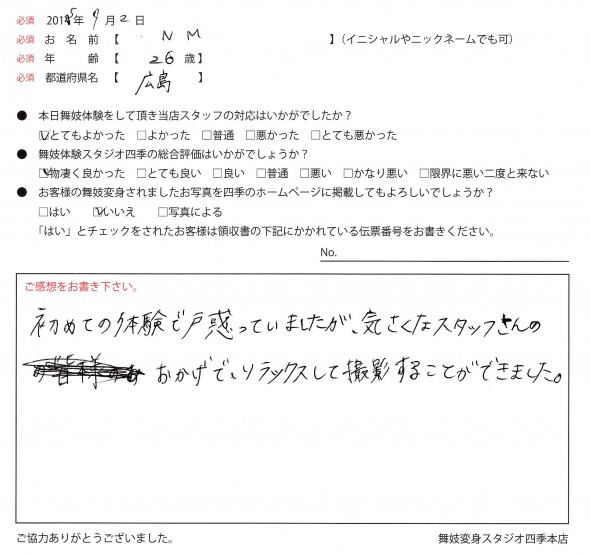 必須 2015年 7月 2日
必須 お名前【 N M 】(イニシャルやニックネームでも可)
必須 年齢【 26 歳】
必須 都道府県名【 広島 】
● 本日舞妓体験をして頂き当店スタッフの対応はいかがでしたか?
☑とてもよかった □よかった □普通 □悪かった □とても悪かった
● 舞妓体験スタジオ四季の総合評価はいかがでしょうか?
☑物凄く良かった □とても良い □良い □普通 □悪い □かなり悪い □限界に悪い二度と来ない
● お客様の舞妓変身されましたお写真を四季のホームページに掲載してもよろしいでしょうか?
□はい ☑いいえ □写真による
「はい」とチェックをされたお客様は領収書の下記にかかれている伝票番号をお書きください。
No.
ご感想をお書き下さい。
初めての体験で戸惑っていましたが、気さくなスタッフさんの
おかげで、リラックスして撮影することができました。
ご協力ありがとうございました。 舞妓変身スタジオ四季本店